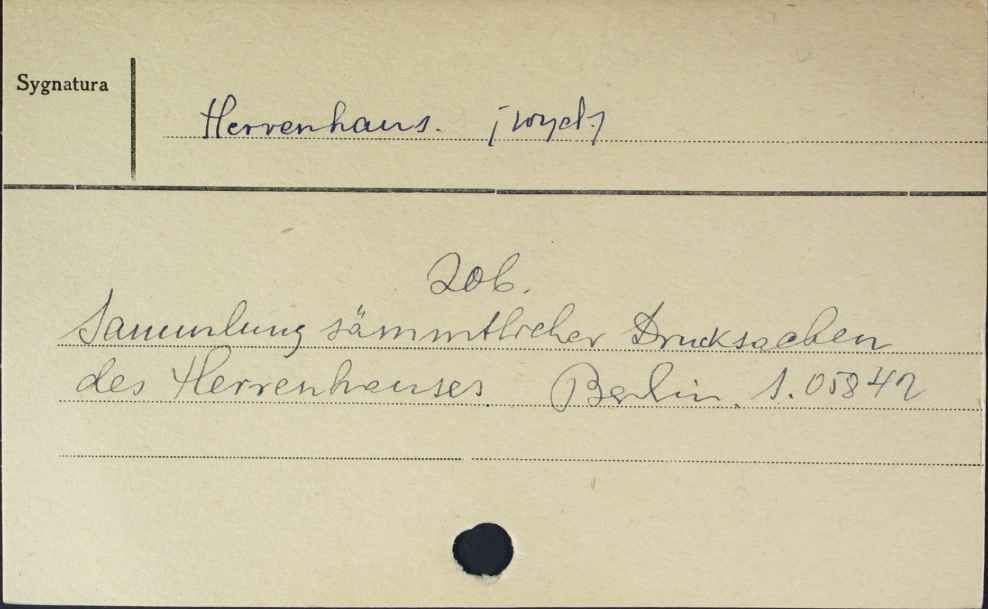 Sygnatura
Herrenhaus. [wyd.]
Zob.
Sammlung sämmtlicher Drucksachen
des Herrenhauses. Berlin. S. 05842